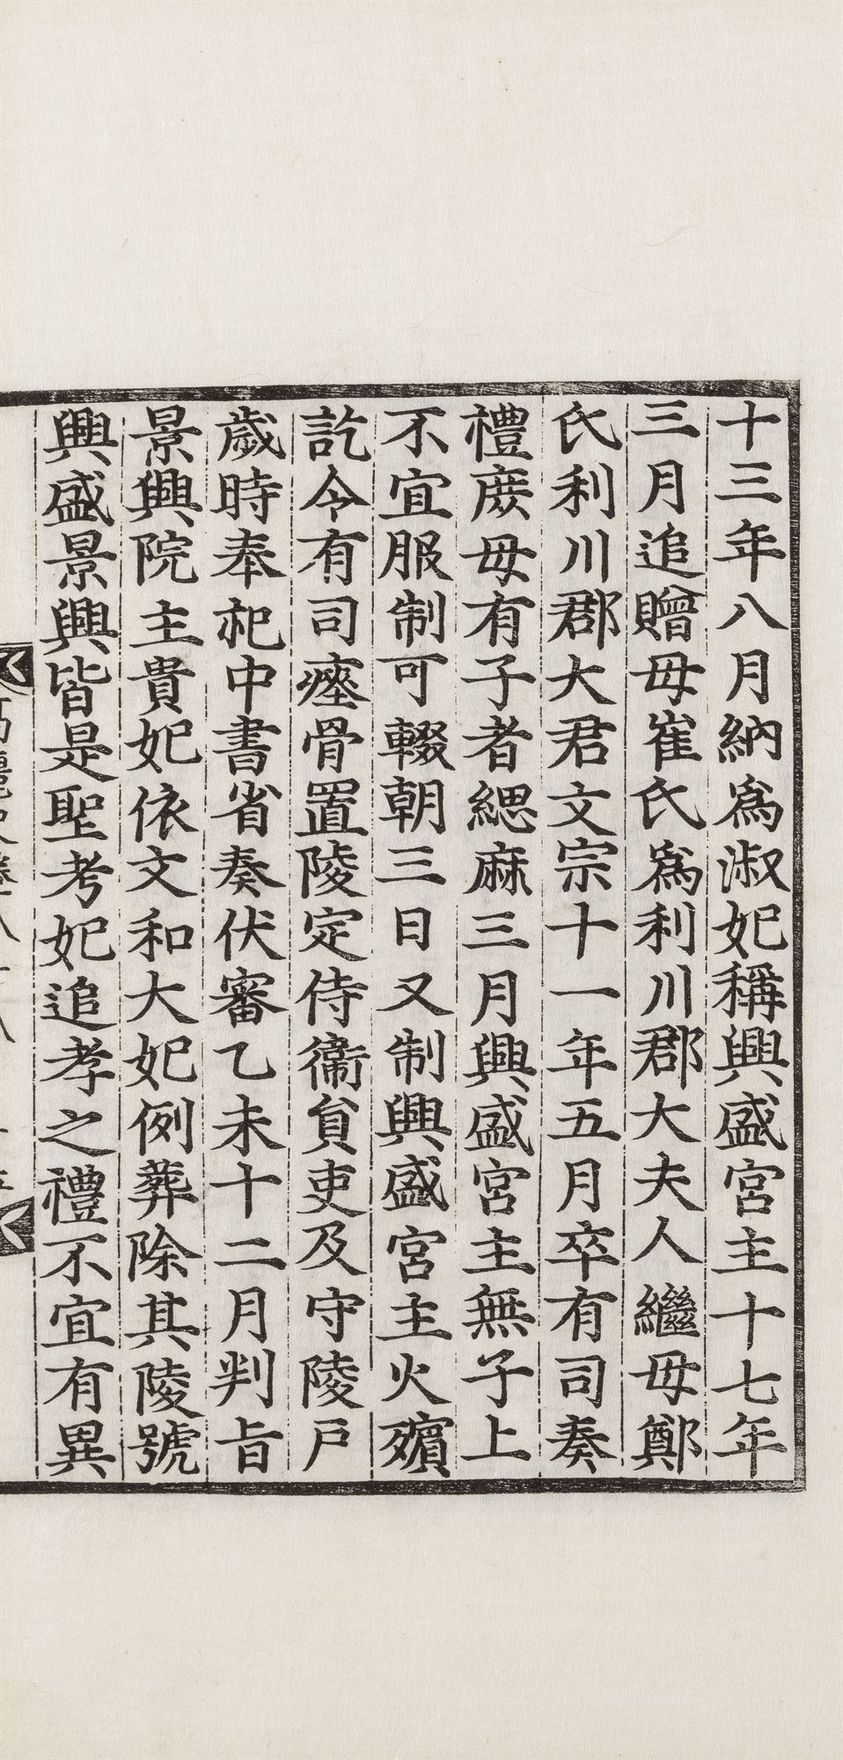 十三年八月納爲淑妃稱興盛宮主十七年
三月追贈母崔氏爲利川郡大夫人繼母鄭
氏利川郡大君文宗十一年五月卒有司奏
禮庶母有子者緦麻三月興盛宮主無子上
不宜服制可輟朝三日又制興盛宮主火殯
訖令有司瘞骨置陵定侍衞貟吏及守陵戶
歲時奉祀中書省奏伏審乙未十二月判旨
景興院主貴妃依文和大妃例葬除其陵號
興盛景興皆是聖考妃追孝之禮不宜有異